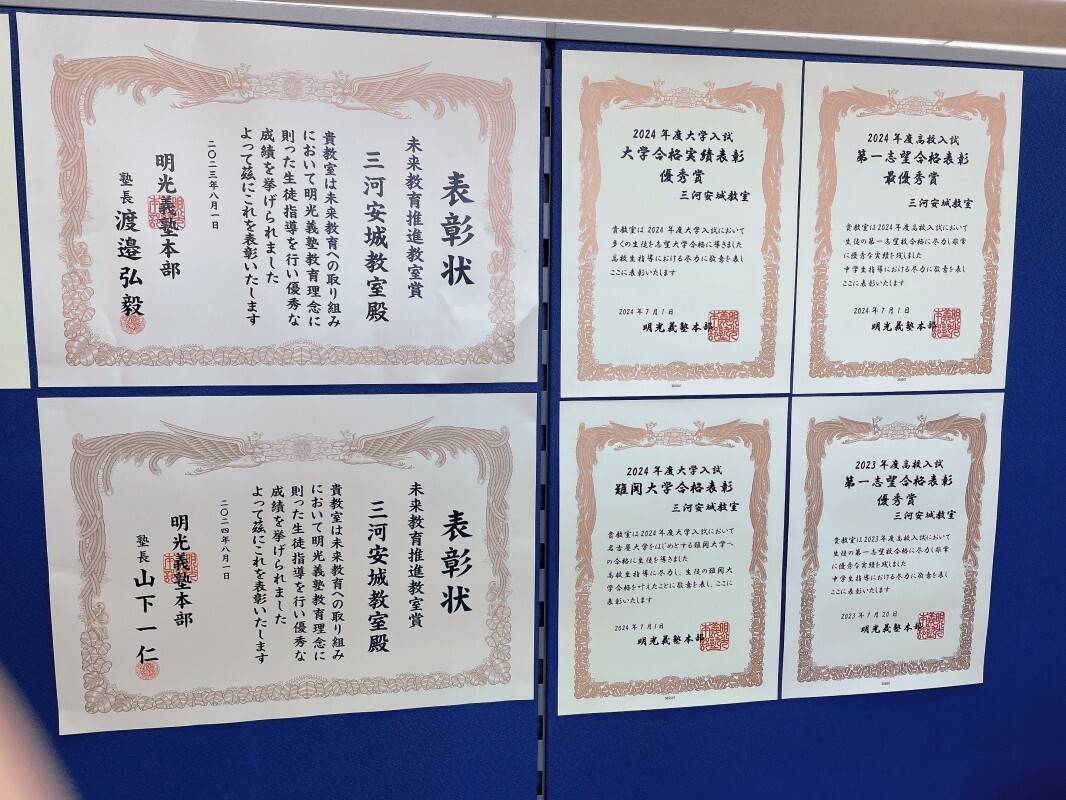 表彰状
未来教育推進教室賞
三河安城教室殿
貴教室は未来教育への取り組み
において明光義塾教育理念に
則った生徒指導を行い優秀な
成績を挙げられました
よって茲にこれを表彰いたします
二〇二三年八月一日
明光義塾本部
塾長 渡邉弘毅
2024年度大学入試
大学合格実績表彰
優秀賞
三河安城教室
貴教室は2024年度大学入試において
多くの生徒を志望大学合格に導きました
高校生指導における尽力に敬意を表し
ここに表彰いたします
2024年7月1日
明光義塾本部
2024年度高校入試
第一志望合格表彰
最優秀賞
三河安城教室
貴教室は2024年度高校入試において
生徒の第一志望校合格に尽力し非常
に優秀な実績を残しました
中学生指導における尽力に敬意を表し
ここに表彰いたします
2024年7月1日
明光義塾本部
表彰状
未来教育推進教室賞
三河安城教室殿
貴教室は未来教育への取り組み
において明光義塾教育理念に
則った生徒指導を行い優秀な
成績を挙げられました
よって茲にこれを表彰いたします
二〇二四年八月一日
明光義塾本部
塾長 山下一仁
2024年度大学入試
難関大学合格表彰
三河安城教室
貴教室は2024年度大学入試において
名古屋大学をはじめとする難関大学へ
の合格に生徒を導きました
高校生指導に尽力し、生徒の難関大
学合格を叶えたことに敬意を表し、ここに
表彰いたします
2024年7月1日
明光義塾本部
2023年度高校入試
第一志望合格表彰
優秀賞
三河安城教室
貴教室は2023年度高校入試において
生徒の第一志望校合格に尽力し非常
に優秀な実績を残しました
中学生指導における尽力に敬意を表し
ここに表彰いたします
2023年7月20日
明光義塾本部